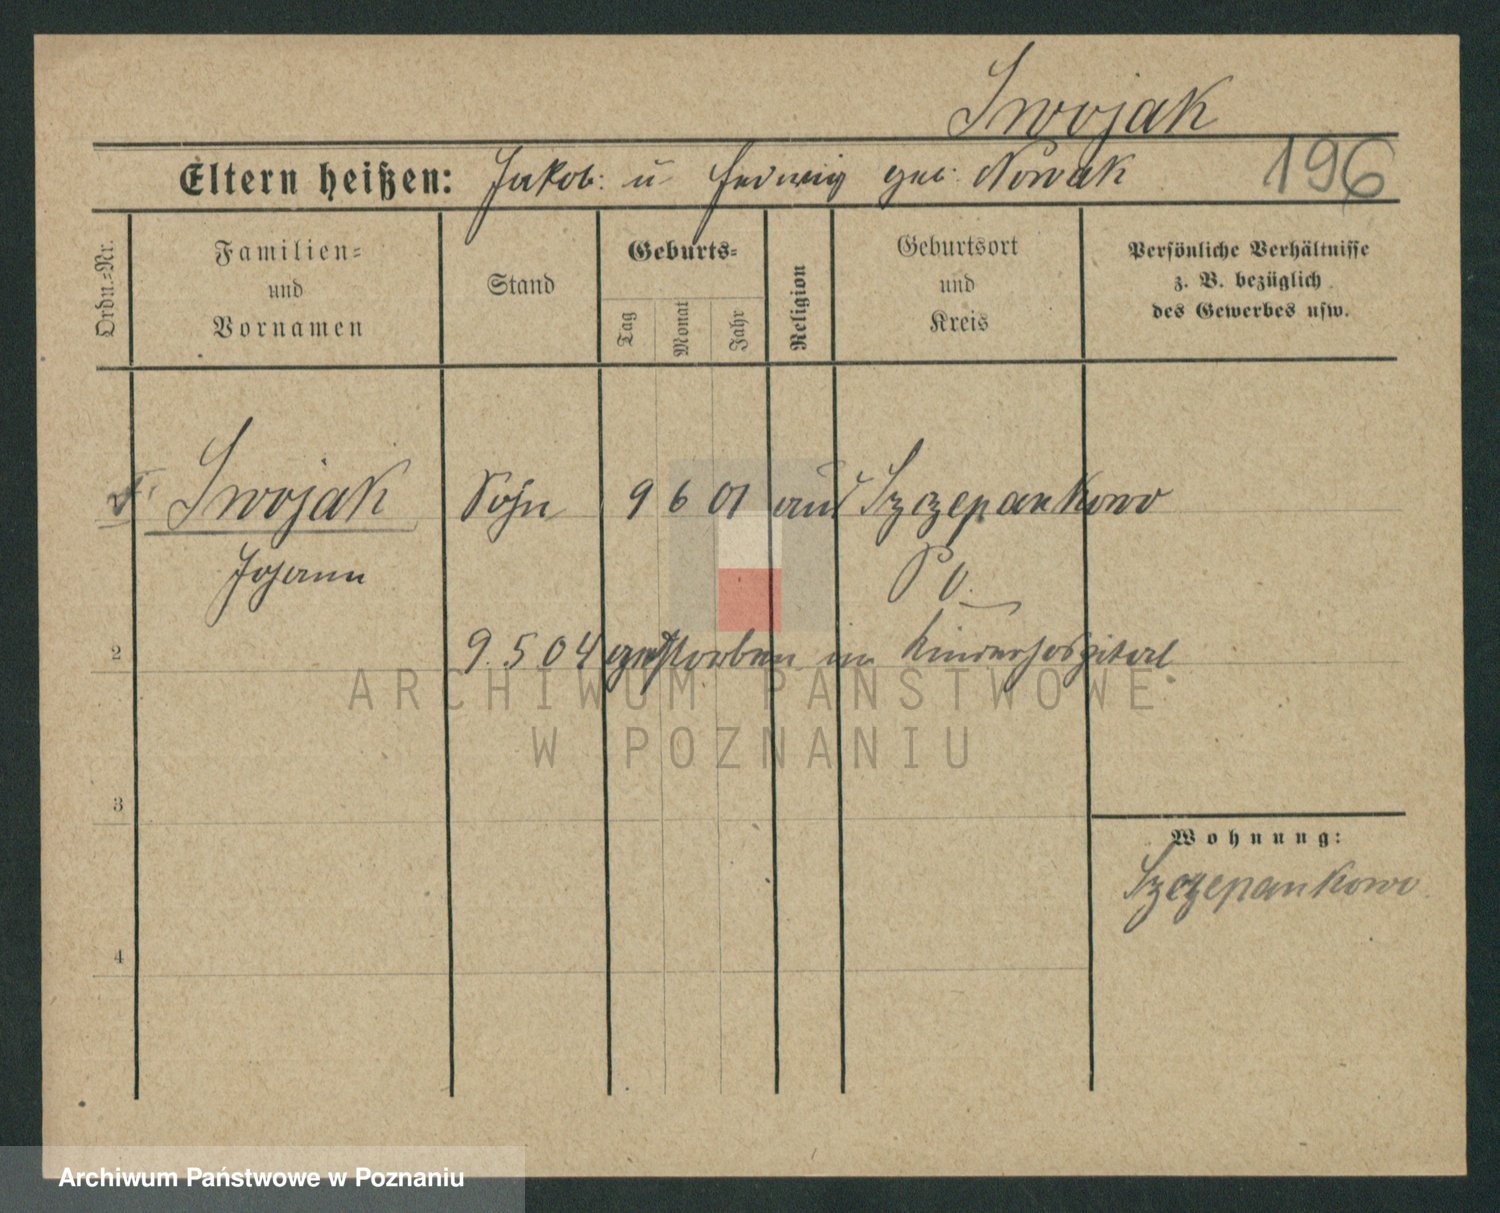 Swojak
Eltern heißen: Jakob u Hedwig geb. Nowak 196
Ordn.-Nr.
Familien-
und
Vornamen
Stand
Geburts-
Tag
Monat
Jahr
Religion
Geburtsort
und
Kreis
Persönliche Verhältnisse
z. B. bezüglich
des Gewerbes usw.
Swojak Sohn 9 6 01 Szczepankowo
Johann P O.
2 9. 5 04 gestorben im Kinderhospital
ARCHIWUM PAŃSTWOWE
W POZNANIU
3
Wohnung:
Szczepankowo
4
Archiwum Państwowe w Poznaniu